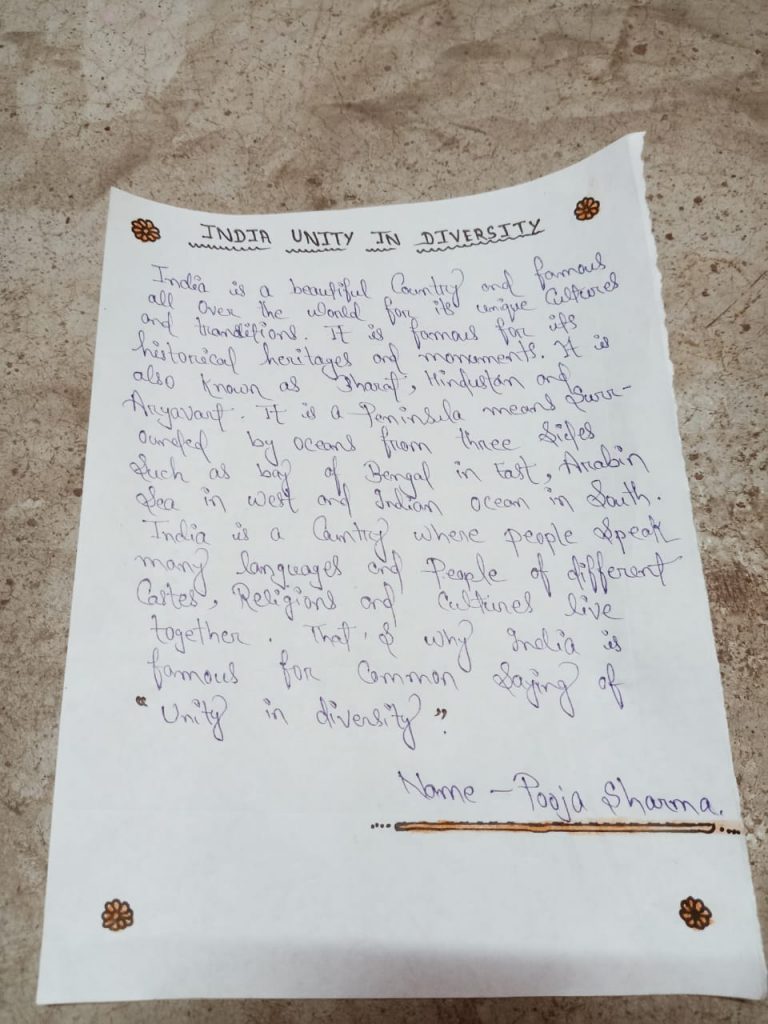 INDIA UNITY IN DIVERSITY
India is a beautiful Country and famous
all over the world for its unique Cultures
and tranditions. It is famous for its
historical heritages and monuments. It is
also known as Bharat, Hindustan and
Aryavart. It is a Peninsula means Surr-
ounded by oceans from three sides
Such as bay of Bengal in East, Arabin
Sea in west and Indian ocean in South.
India is a Country where people speak
many languages and People of different
Castes, Religions and Cultures live
together. That's why India is
famous for Common Saying of
"Unity in diversity".
Name - Pooja Sharma.